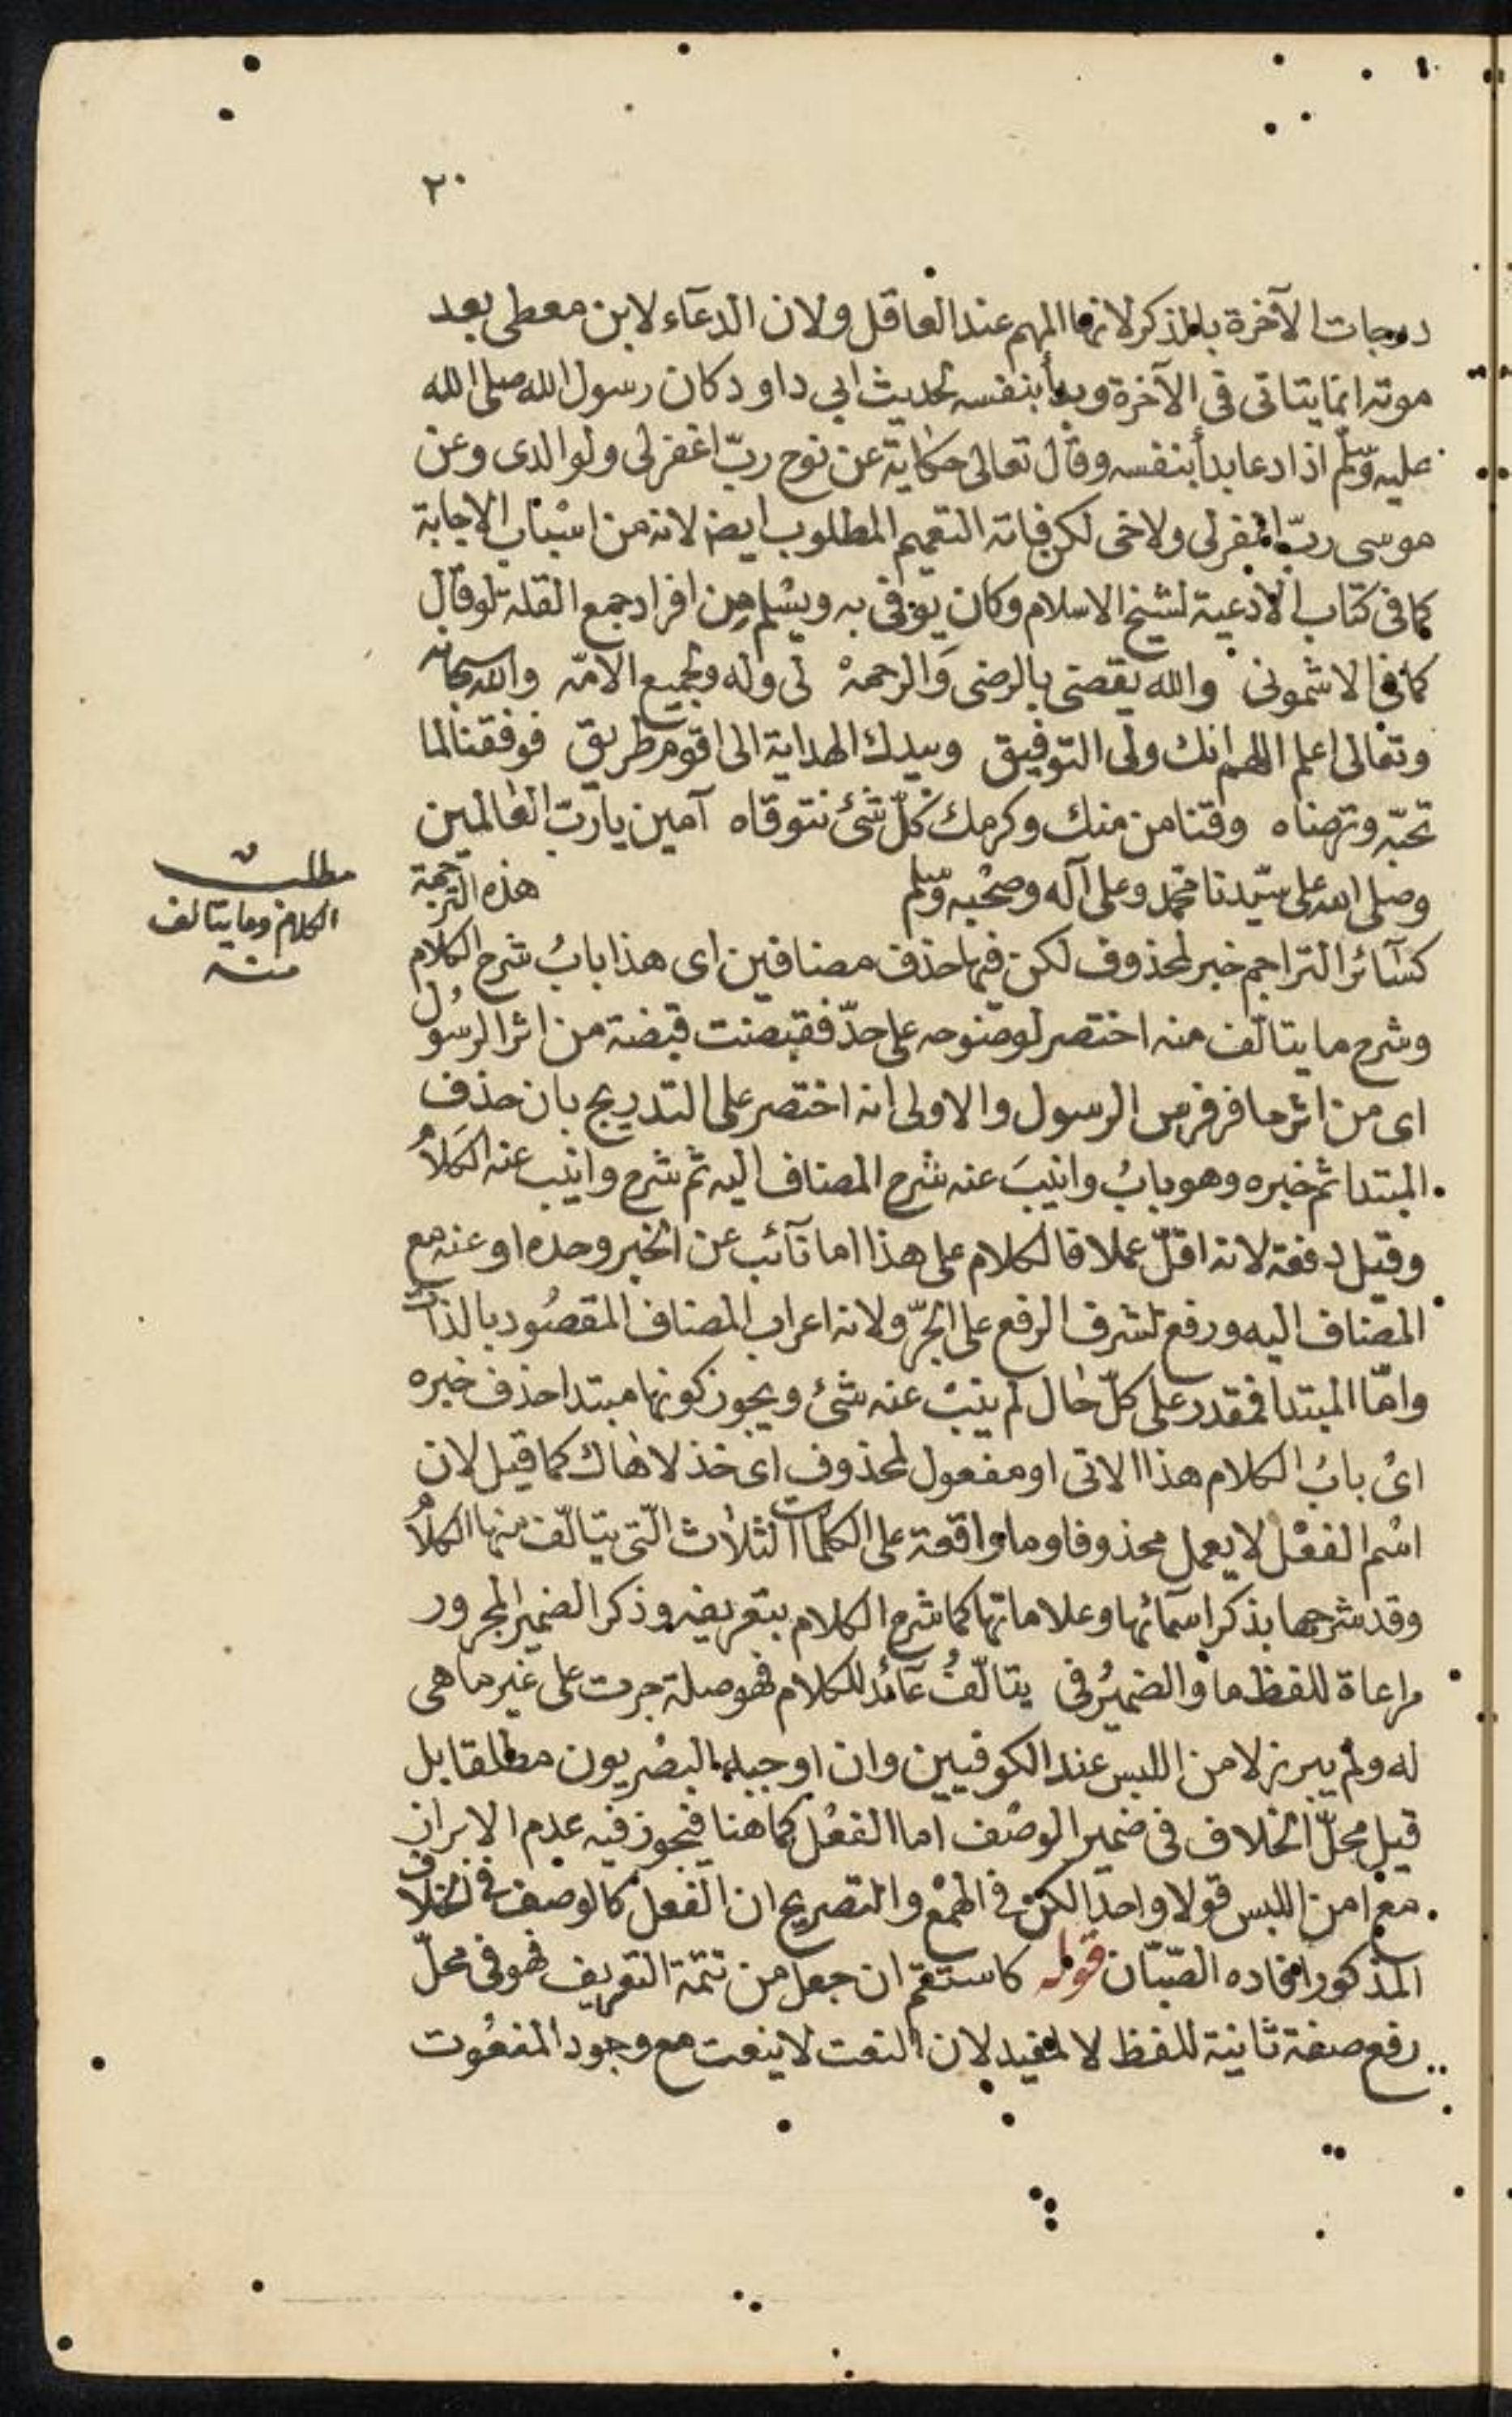 ٢٠
درجات الآخرة بالذكر لانها المهم عند العاقل ولان الدعآء لابن معطى بعد
موته انما يتاتى فى الآخرة وبدأ بنفسه لحديث ابى داود كان رسول الله صلى الله
عليه وسلم اذا دعا بدأ بنفسه وقال تعالى حكاية عن نوح ربّ اغفر لى ولوالدى وعن
موسى ربّ اغفر لى ولاخى لكن فاته التعميم المطلوب ايضا لانه من اسباب الاجابة
كما فى كتاب الادعية لشيخ الاسلام وكان يوفى به ويسلم من افراد جمع القلة لو قال
كما فى الاشمونى والله يقضى بالرضى وَالرحمهْ لى وله ولجميع الامّه والله سبحانه
وتعالى اعلم اللهم انك ولى التوفيق وبيدك الهداية الى اقوم طريق فوفقنا لما
تحبّه وترضاه وقنا من منك وكرمك كلّ شئ نتوقاه آمين يا ربّ العالمين
وصلى الله على سيّدنا محمد وعلى آله وصحْبه وسلم هذه الترجمة
مطلب
الكلام وما يتالف
منه
كسآئر التراجم خبر لمحذوف لكن فيها حذف مضافين اى هذا بابُ شرح الكلام
وشرح ما يتالّف منه اختصر لوضوحه على حدّ فقبضت قبضة من اثر الرسُول
اى من اثر حافر فرس الرسول والاولى انه اختصر على التدريج بان حذف
المبتدا ثم خبره وهو بابُ وانيبَ عنه شرح المضاف اليه ثم شرح وانيب عنه الكلامُ
وقيل دفعة لانه اقلّ عملا فالكلام على هذا اما نآئب عن الخبر وحده او عنه مع
المضاف اليه ورفع لشرف الرفع على الجرّ ولانه اعراب المضاف المقصُود بالذات
وامّا المبتدا فمقدر على كلّ حال لم ينبْ عنه شئ ويجوز كونها مبتدا حذف خبره
اىْ بابُ الكلام هذا الاتى او مفعول لمحذوف اى خذ لا هاك كما قيل لان
اسْم الفعْل لا يعمل محذوفا وما واقعة على الكلمات الثلاث الّتى يتالّف منها الكلامُ
وقد شرحها بذكر اسمآئها وعلاماتها كما شرح الكلام بتعريفه وذكر الضمير المجرور
مراعاة للفظ ما والضميرُ فى يتالّفُ عَآئد للكلام فهو صلة جرت على غير ما هى
له ولم يبرز لامن اللبس عند الكوفيين وان اوجبه البصْريون مطلقا بل
قيل محلّ الخلاف فى ضمير الوصْف اما الفعْل كما هنا فيجوز فيه عدم الابراز
مع امن اللبس قولا واحدا لكن فى الهمْع والتصريح ان الفعل كالوصف فى الخلاف
المذكور افاده الصّبّان قوله كاستقم ان جعل من تتمّة التعريف فهو فى محلّ
رفع صفة ثانية للفظ لا لمفيد لان النعت لا ينعت مع وجود المنعُوت